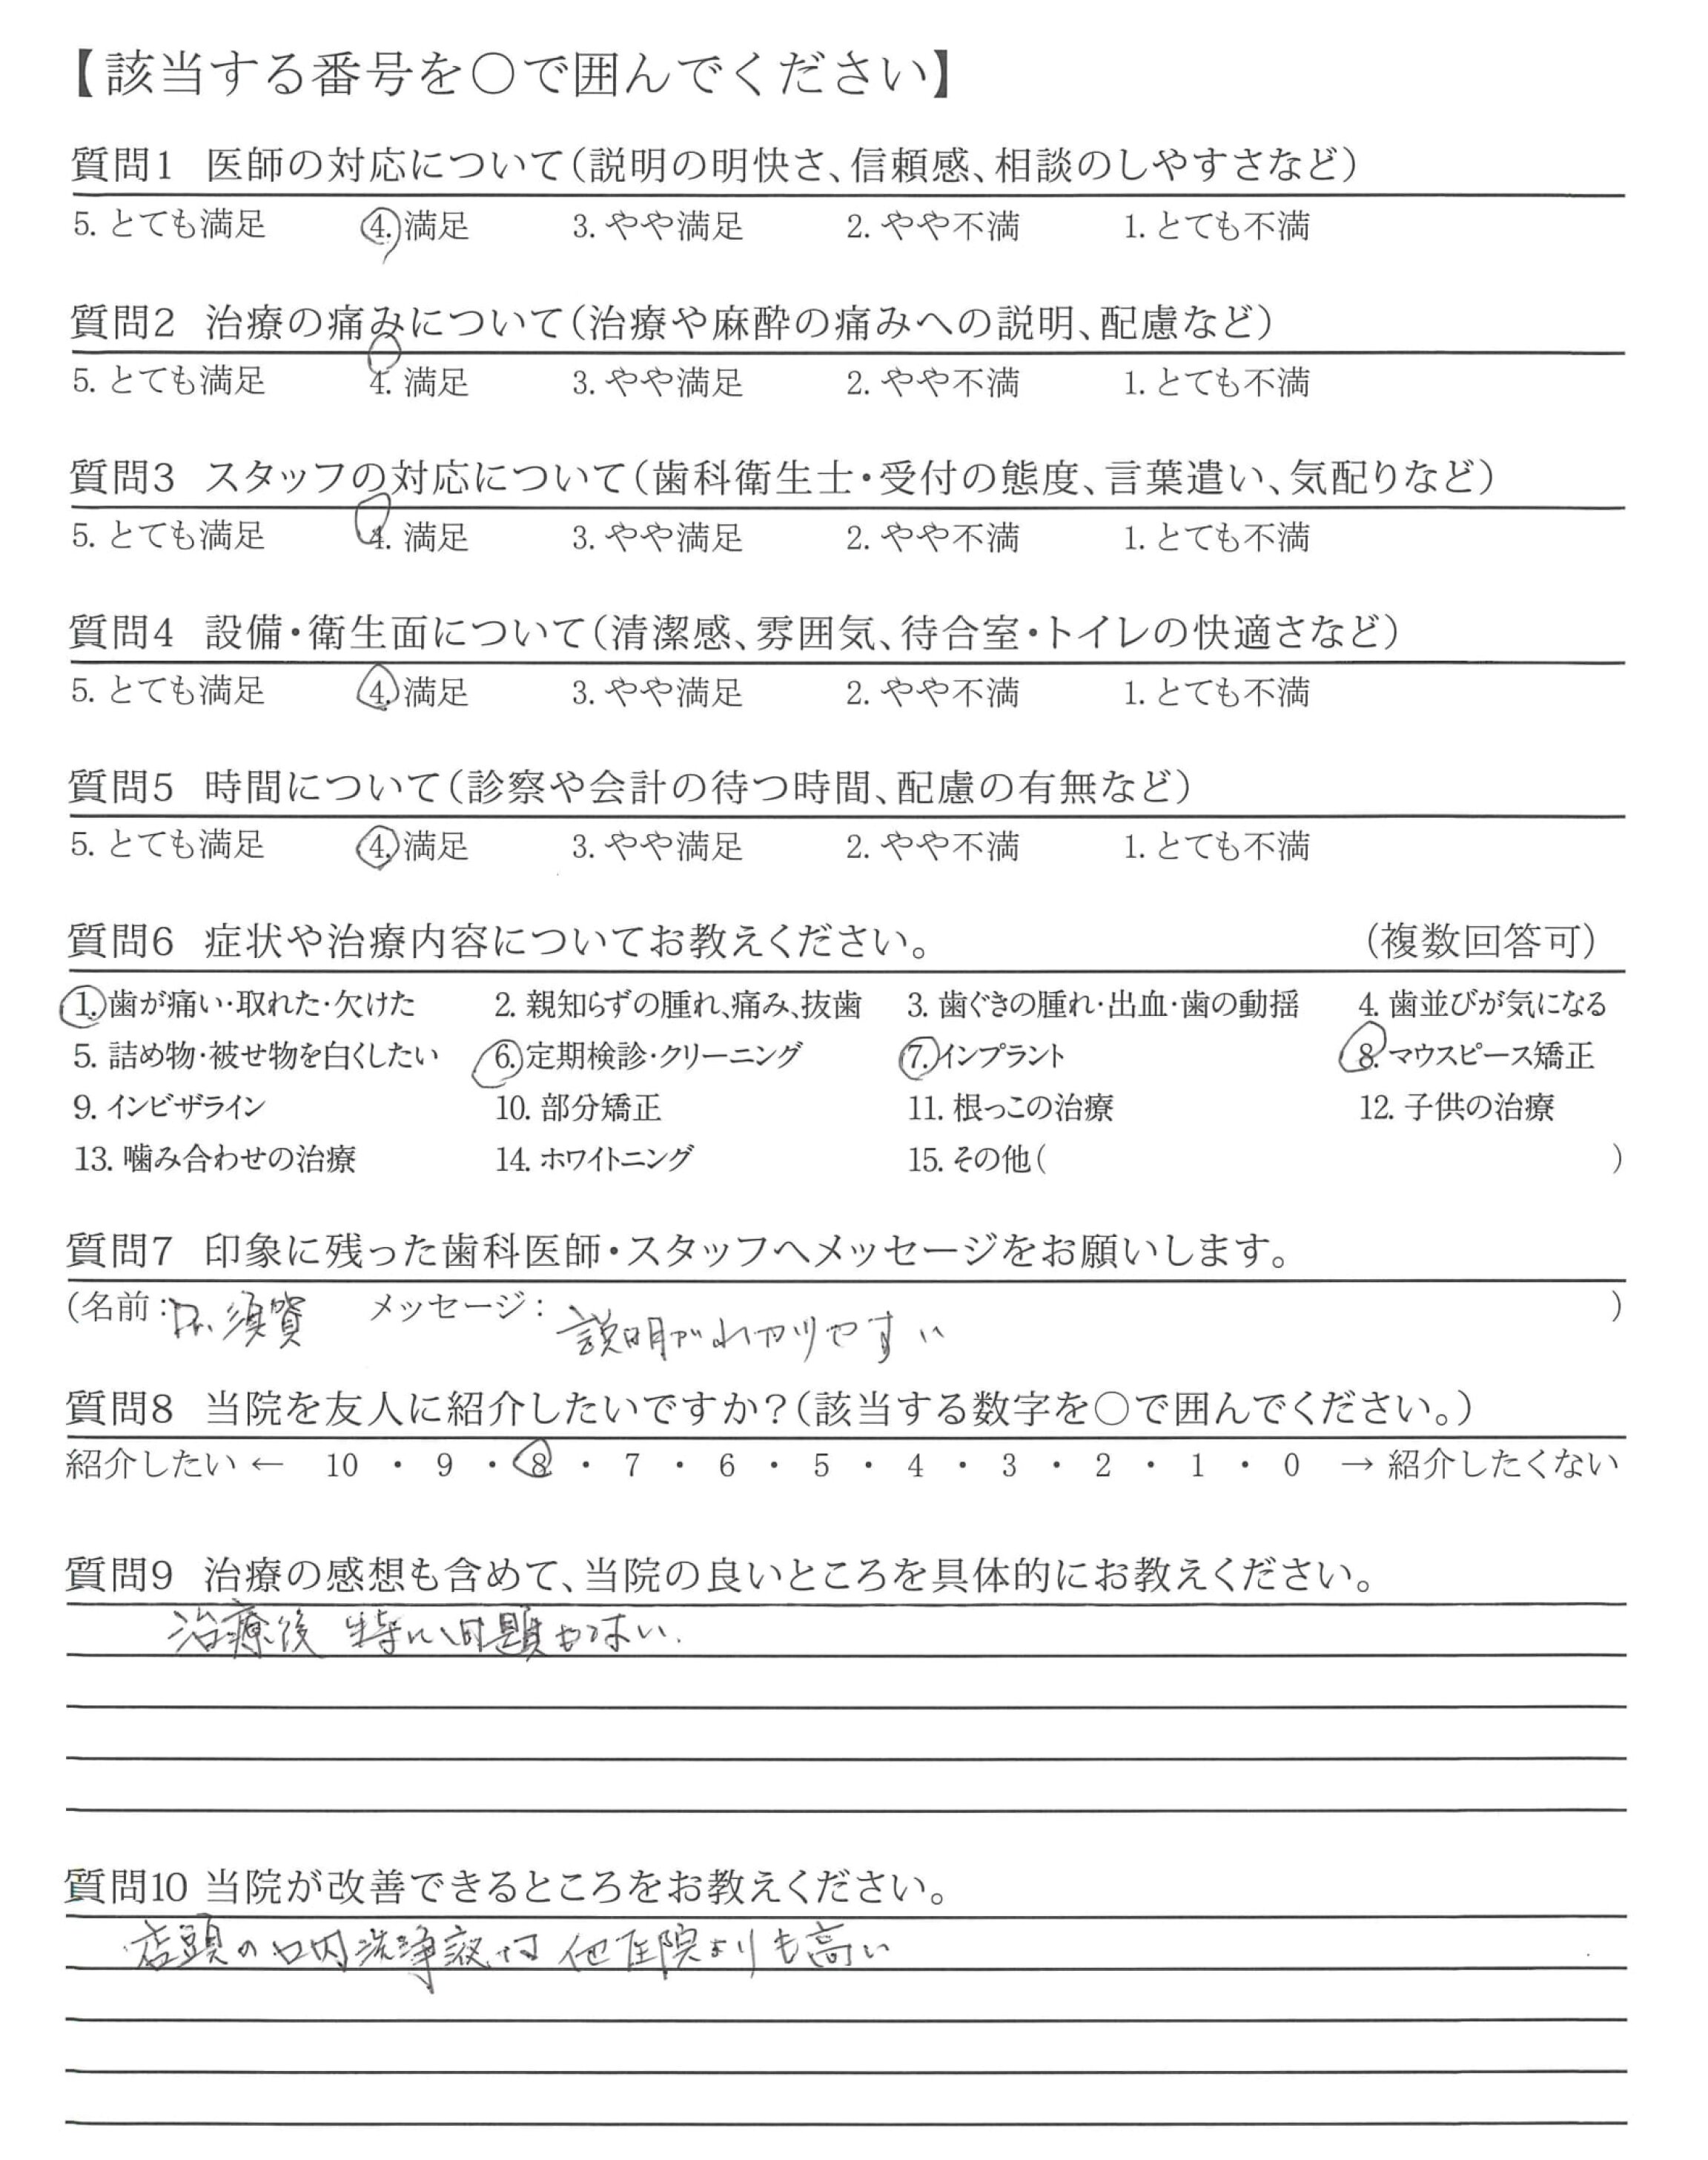 【該当する番号を〇で囲んでください】
質問1 医師の対応について(説明の明快さ、信頼感、相談のしやすさなど)
5. とても満足 4. 満足 3. やや満足 2. やや不満 1. とても不満
質問2 治療の痛みについて(治療や麻酔の痛みへの説明、配慮など)
5. とても満足 4. 満足 3. やや満足 2. やや不満 1. とても不満
質問3 スタッフの対応について(歯科衛生士・受付の態度、言葉遣い、気配りなど)
5. とても満足 4. 満足 3. やや満足 2. やや不満 1. とても不満
質問4 設備・衛生面について(清潔感、雰囲気、待合室・トイレの快適さなど)
5. とても満足 4. 満足 3. やや満足 2. やや不満 1. とても不満
質問5 時間について(診察や会計の待つ時間、配慮の有無など)
5. とても満足 4. 満足 3. やや満足 2. やや不満 1. とても不満
質問6 症状や治療内容についてお教えください。 (複数回答可)
1. 歯が痛い・取れた・欠けた 2. 親知らずの腫れ、痛み、抜歯 3. 歯ぐきの腫れ・出血・歯の動揺 4. 歯並びが気になる
5. 詰め物・被せ物を白くしたい 6. 定期検診・クリーニング 7. インプラント 8. マウスピース矯正
9. インビザライン 10. 部分矯正 11. 根っこの治療 12. 子供の治療
13. 噛み合わせの治療 14. ホワイトニング 15. その他( )
質問7 印象に残った歯科医師・スタッフへメッセージをお願いします。
(名前: Dr. 須賀 メッセージ: 説明がわかりやすい )
質問8 当院を友人に紹介したいですか?(該当する数字を〇で囲んでください。)
紹介したい ← 10 ・ 9 ・ 8 ・ 7 ・ 6 ・ 5 ・ 4 ・ 3 ・ 2 ・ 1 ・ 0 → 紹介したくない
質問9 治療の感想も含めて、当院の良いところを具体的にお教えください。
治療後 特に問題もない.
質問10 当院が改善できるところをお教えください。
店頭の口内洗浄液は他医院よりも高い